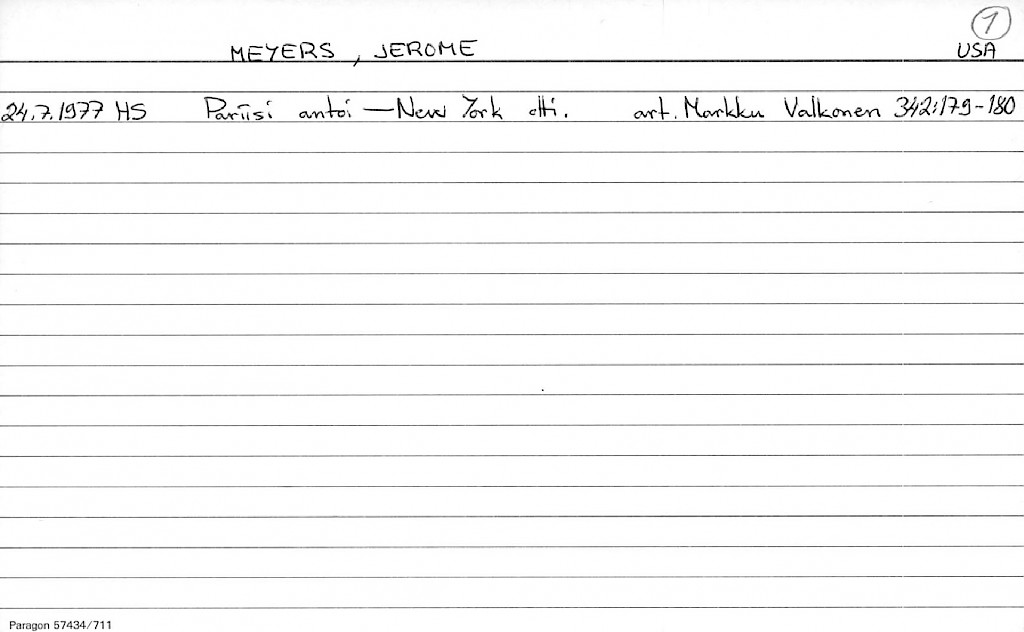 1
MEYERS, JEROME USA
24.7.1977 HS Pariisi antoi — New York otti. art. Markku Valkonen 342:179-180
Paragon 57434/711